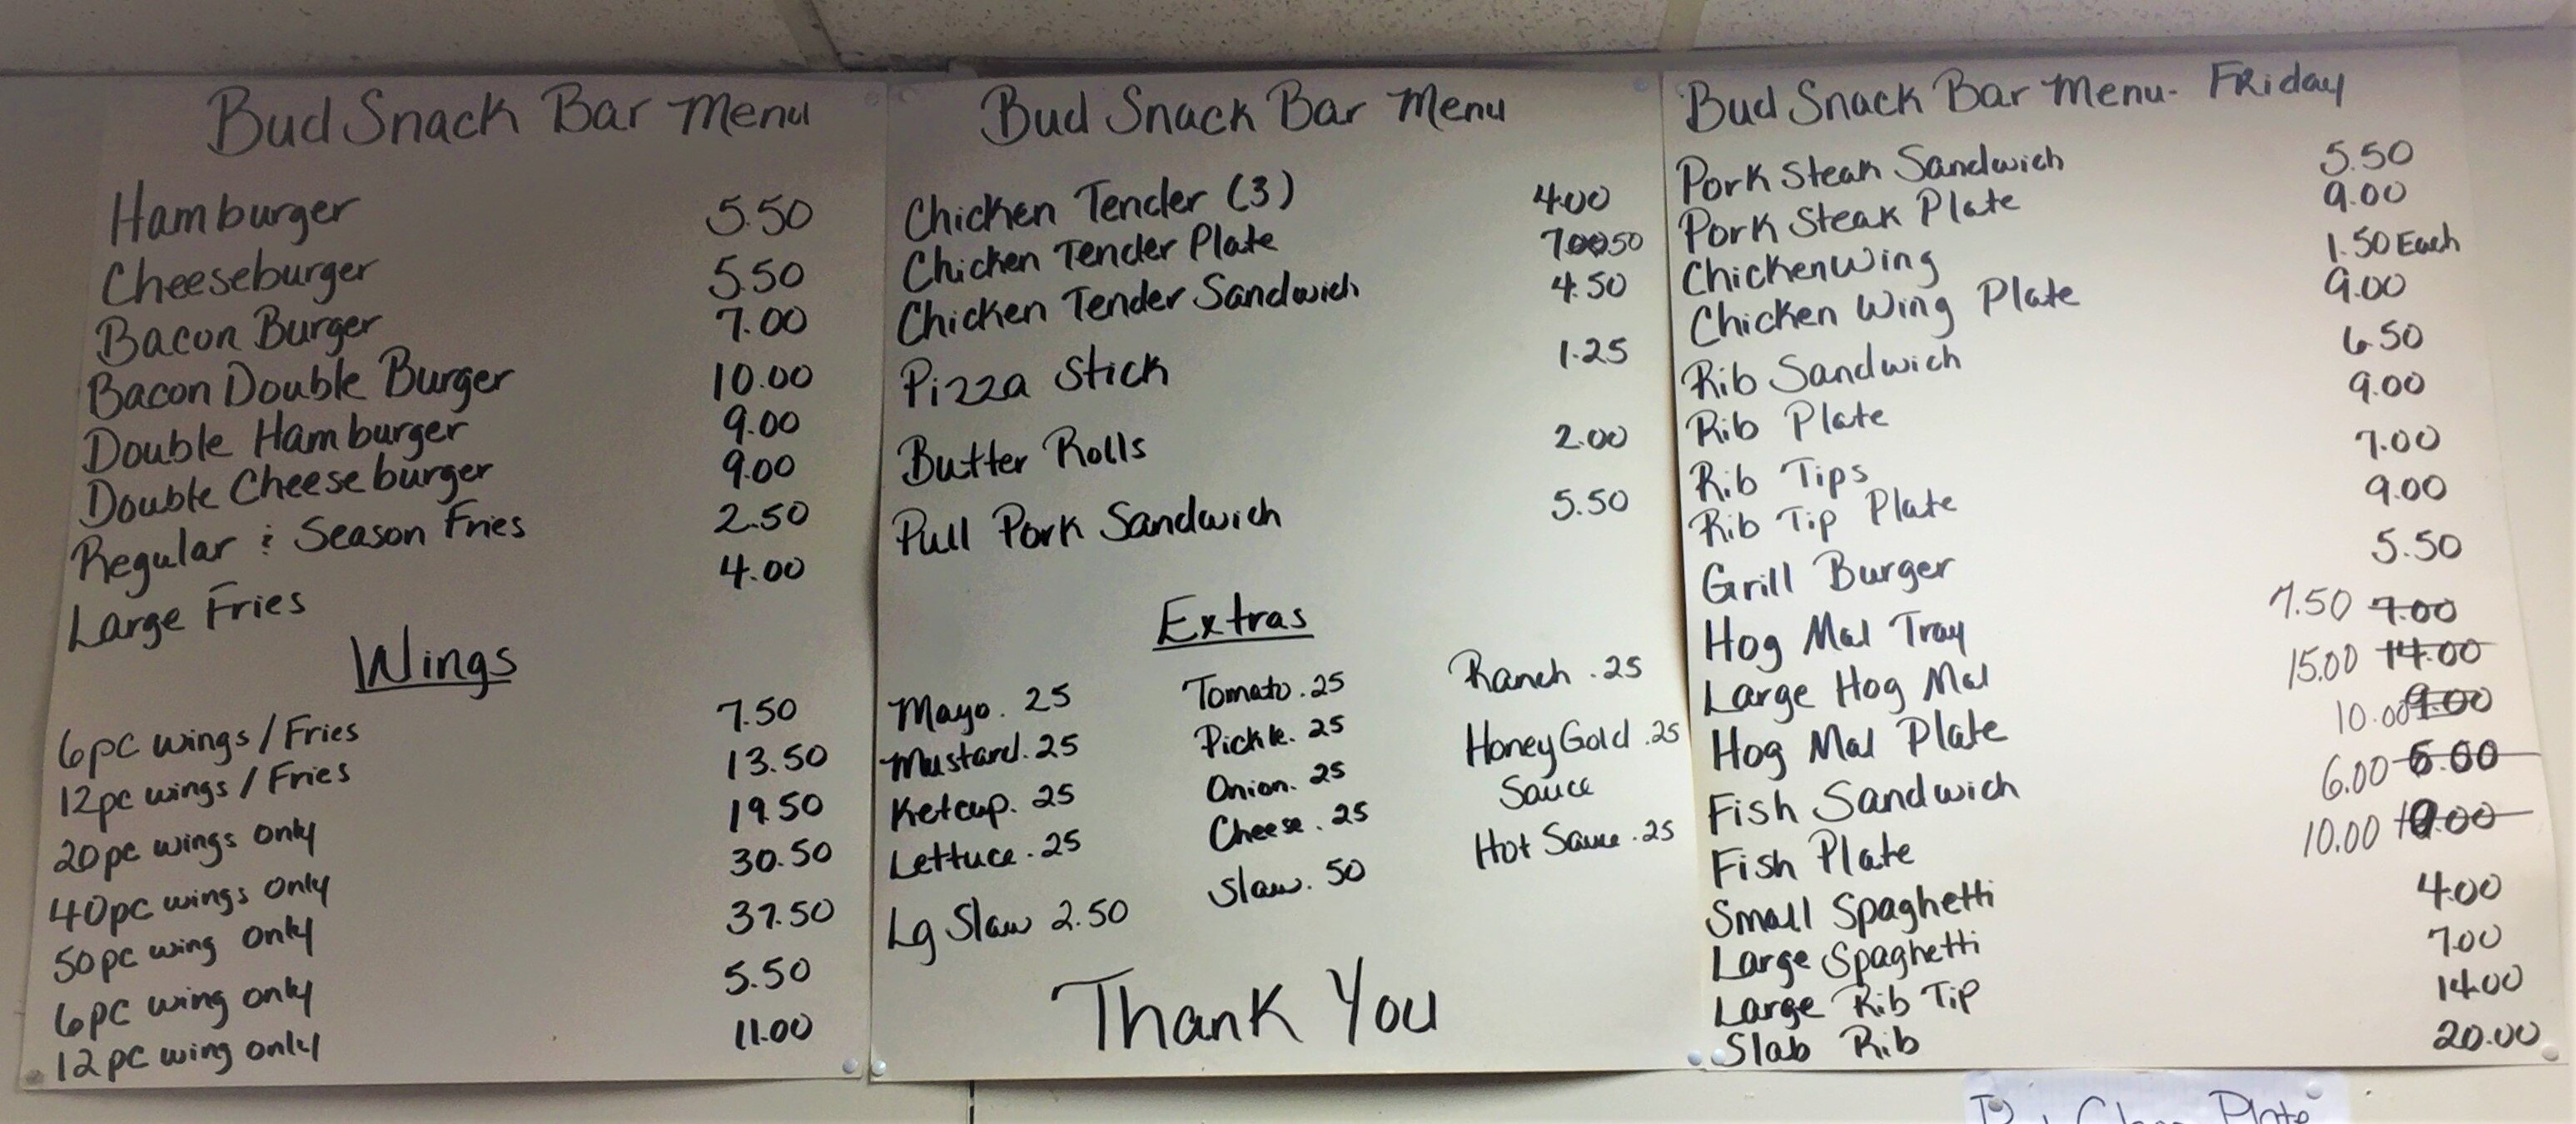 Bud Snack Bar Menu
Hamburger 5.50
Cheeseburger 5.50
Bacon Burger 7.00
Bacon Double Burger 10.00
Double Hamburger 9.00
Double Cheeseburger 9.00
Regular & Season Fries 2.50
Large Fries 4.00
Wings
6pc wings / Fries 7.50
12pc wings / Fries 13.50
20pc wings only 19.50
40pc wings only 30.50
50pc wing only 37.50
6pc wing only 5.50
12pc wing only 11.00
Bud Snack Bar Menu
Chicken Tender (3) 4.00
Chicken Tender Plate 7.0050
Chicken Tender Sandwich 4.50
Pizza Stick 1.25
Butter Rolls 2.00
Pull Pork Sandwich 5.50
Extras
Mayo .25 Tomato .25 Ranch .25
Mustard .25 Pickle .25 Honey Gold .25
Ketcup .25 Onion .25 Sauce
Lettuce .25 Cheese .25 Hot Sauce .25
Lg Slaw 2.50 Slaw .50
Thank You
Bud Snack Bar Menu - Friday
Pork Steak Sandwich 5.50
Pork Steak Plate 9.00
Chicken Wing 1.50 Each
Chicken Wing Plate 9.00
Rib Sandwich 6.50
Rib Plate 9.00
Rib Tips 7.00
Rib Tip Plate 9.00
Grill Burger 5.50
Hog Mal Tray 7.50 7.00
Large Hog Mal 15.00 14.00
Hog Mal Plate 10.00 9.00
Fish Sandwich 6.00
Fish Plate 10.00
Small Spaghetti 4.00
Large Spaghetti 7.00
Large Rib Tip 14.00
Slab Rib 20.00
Plate